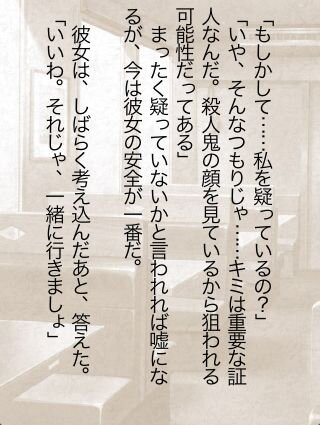 「もしかして……私を疑っているの？」
「いや、そんなつもりじゃ……キミは重要な証
人なんだ。殺人鬼の顔を見ているから狙われる
可能性だってある」
　まったく疑っていないかと言われれば嘘にな
るが、今は彼女の安全が一番だ。
　彼女は、しばらく考え込んだあと、答えた。
「いいわ。それじゃ、一緒に行きましょ」